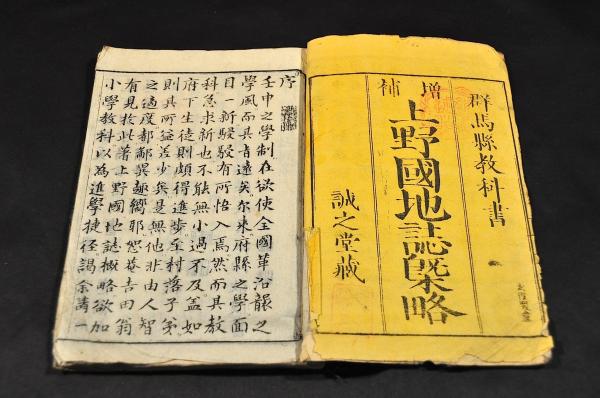 群馬縣教科書
增補
上野國地誌槩略
誠之堂藏
序
壬申之學制在欲使全國革沿襲之
學風而其旨遠矣尔来府縣之學面
目一新駸駸有所悟入焉然而其教
科急求新也不能無小過不及盖如
府下生徒則頗得進歩至村落子弟
則其所益差少矣是無他非由人智
之適度都鄙異趣嚮耶菴吉田翁
有見於此著上野国地誌概略欲加
小學教科以為進學捷径謁余需一